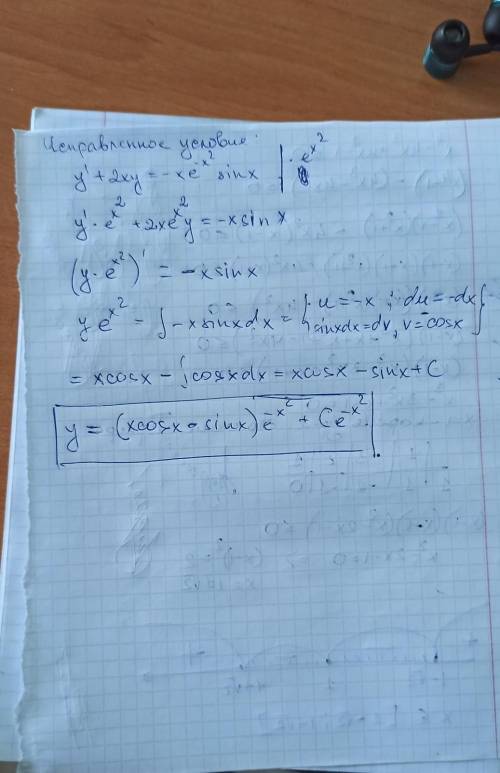 Исправленное условие:
y' + 2xy = -xe^{-x^2} sinx | · e^{x^2}
y' · e^{x^2} + 2xe^{x^2}y = -x sin x
(y · e^{x^2})' = -x sinx
y e^{x^2} = ∫ -x sinx dx = { u = -x ; du = -dx
sinxdx = dv, v = cosx }
= xcosx - ∫cosxdx = xcosx - sinx + C
y = (xcosx - sinx)e^{-x^2} + Ce^{-x^2}.